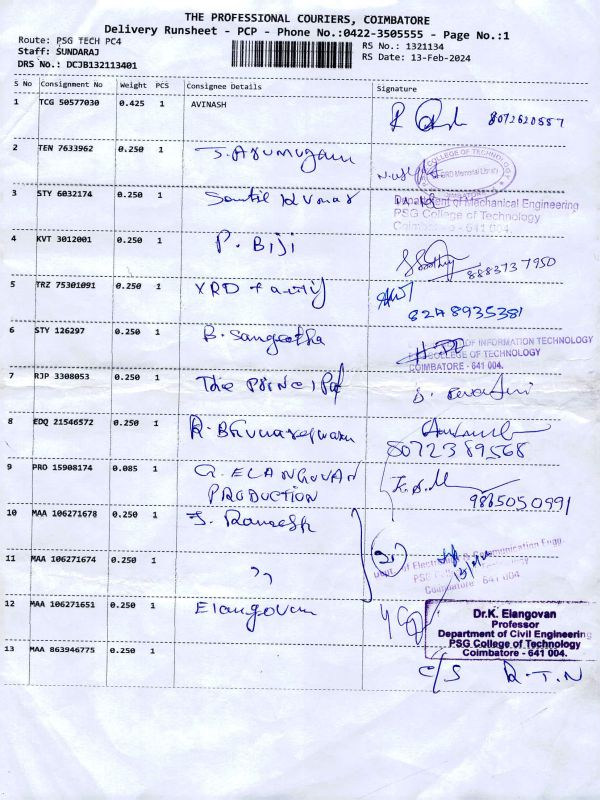 THE PROFESSIONAL COURIERS, COIMBATORE
Delivery Runsheet - PCP - Phone No.:0422-3505555 - Page No.:1
Route: PSG TECH PC4
Staff: SUNDARAJ
DRS No.: DCJB132113401
RS No.: 1321134
RS Date: 13-Feb-2024
S No Consignment No Weight PCS Consignee Details Signature
1 TCG 50577030 0.425 1 AVINASH
8072620557
2 TEN 7633962 0.250 1 J. Arumugam
COLLEGE OF TECHNOLOGY
GRD Memorial Library
3 STY 6032174 0.250 1 Senthil Kumar
Department of Mechanical Engineering
PSG College of Technology
Coimbatore - 641 004.
4 KVT 3012001 0.250 1 P. BIJI
8883737950
5 TRZ 75301091 0.250 1 XRD facility
8248935381
6 STY 126297 0.250 1 B. Sangeetha
OF INFORMATION TECHNOLOGY
PSG COLLEGE OF TECHNOLOGY
COIMBATORE - 641 004.
7 RJP 3308053 0.250 1 The Principal
8 EDQ 21546572 0.250 1 R. Bhuvaneshwaran
8072389568
9 PRO 15908174 0.085 1 G. ELANGOVAN
PRODUCTION
9865050991
10 MAA 106271678 0.250 1 J. Ramesh
11 MAA 106271674 0.250 1 ,,
Dept. of Electronics & Communication Engg.
PSG College of Technology
Coimbatore - 641 004
12 MAA 106271651 0.250 1 Elangovan
Dr.K. Elangovan
Professor
Department of Civil Engineering
PSG College of Technology
Coimbatore - 641 004.
13 MAA 863946775 0.250 1
C/S R.T.N